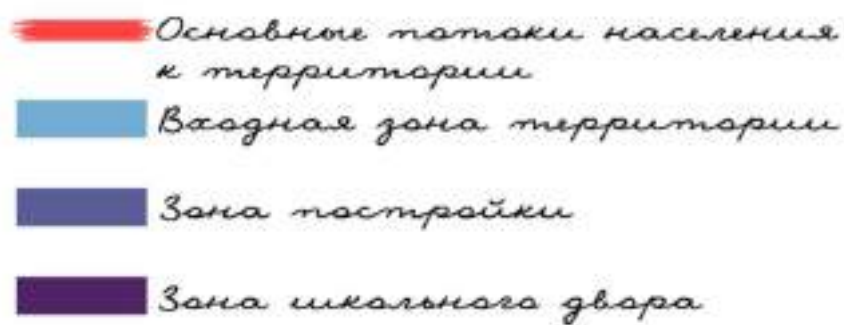 Основные потоки населения
к территории
Входная зона территории
Зона постройки
Зона школьного двора